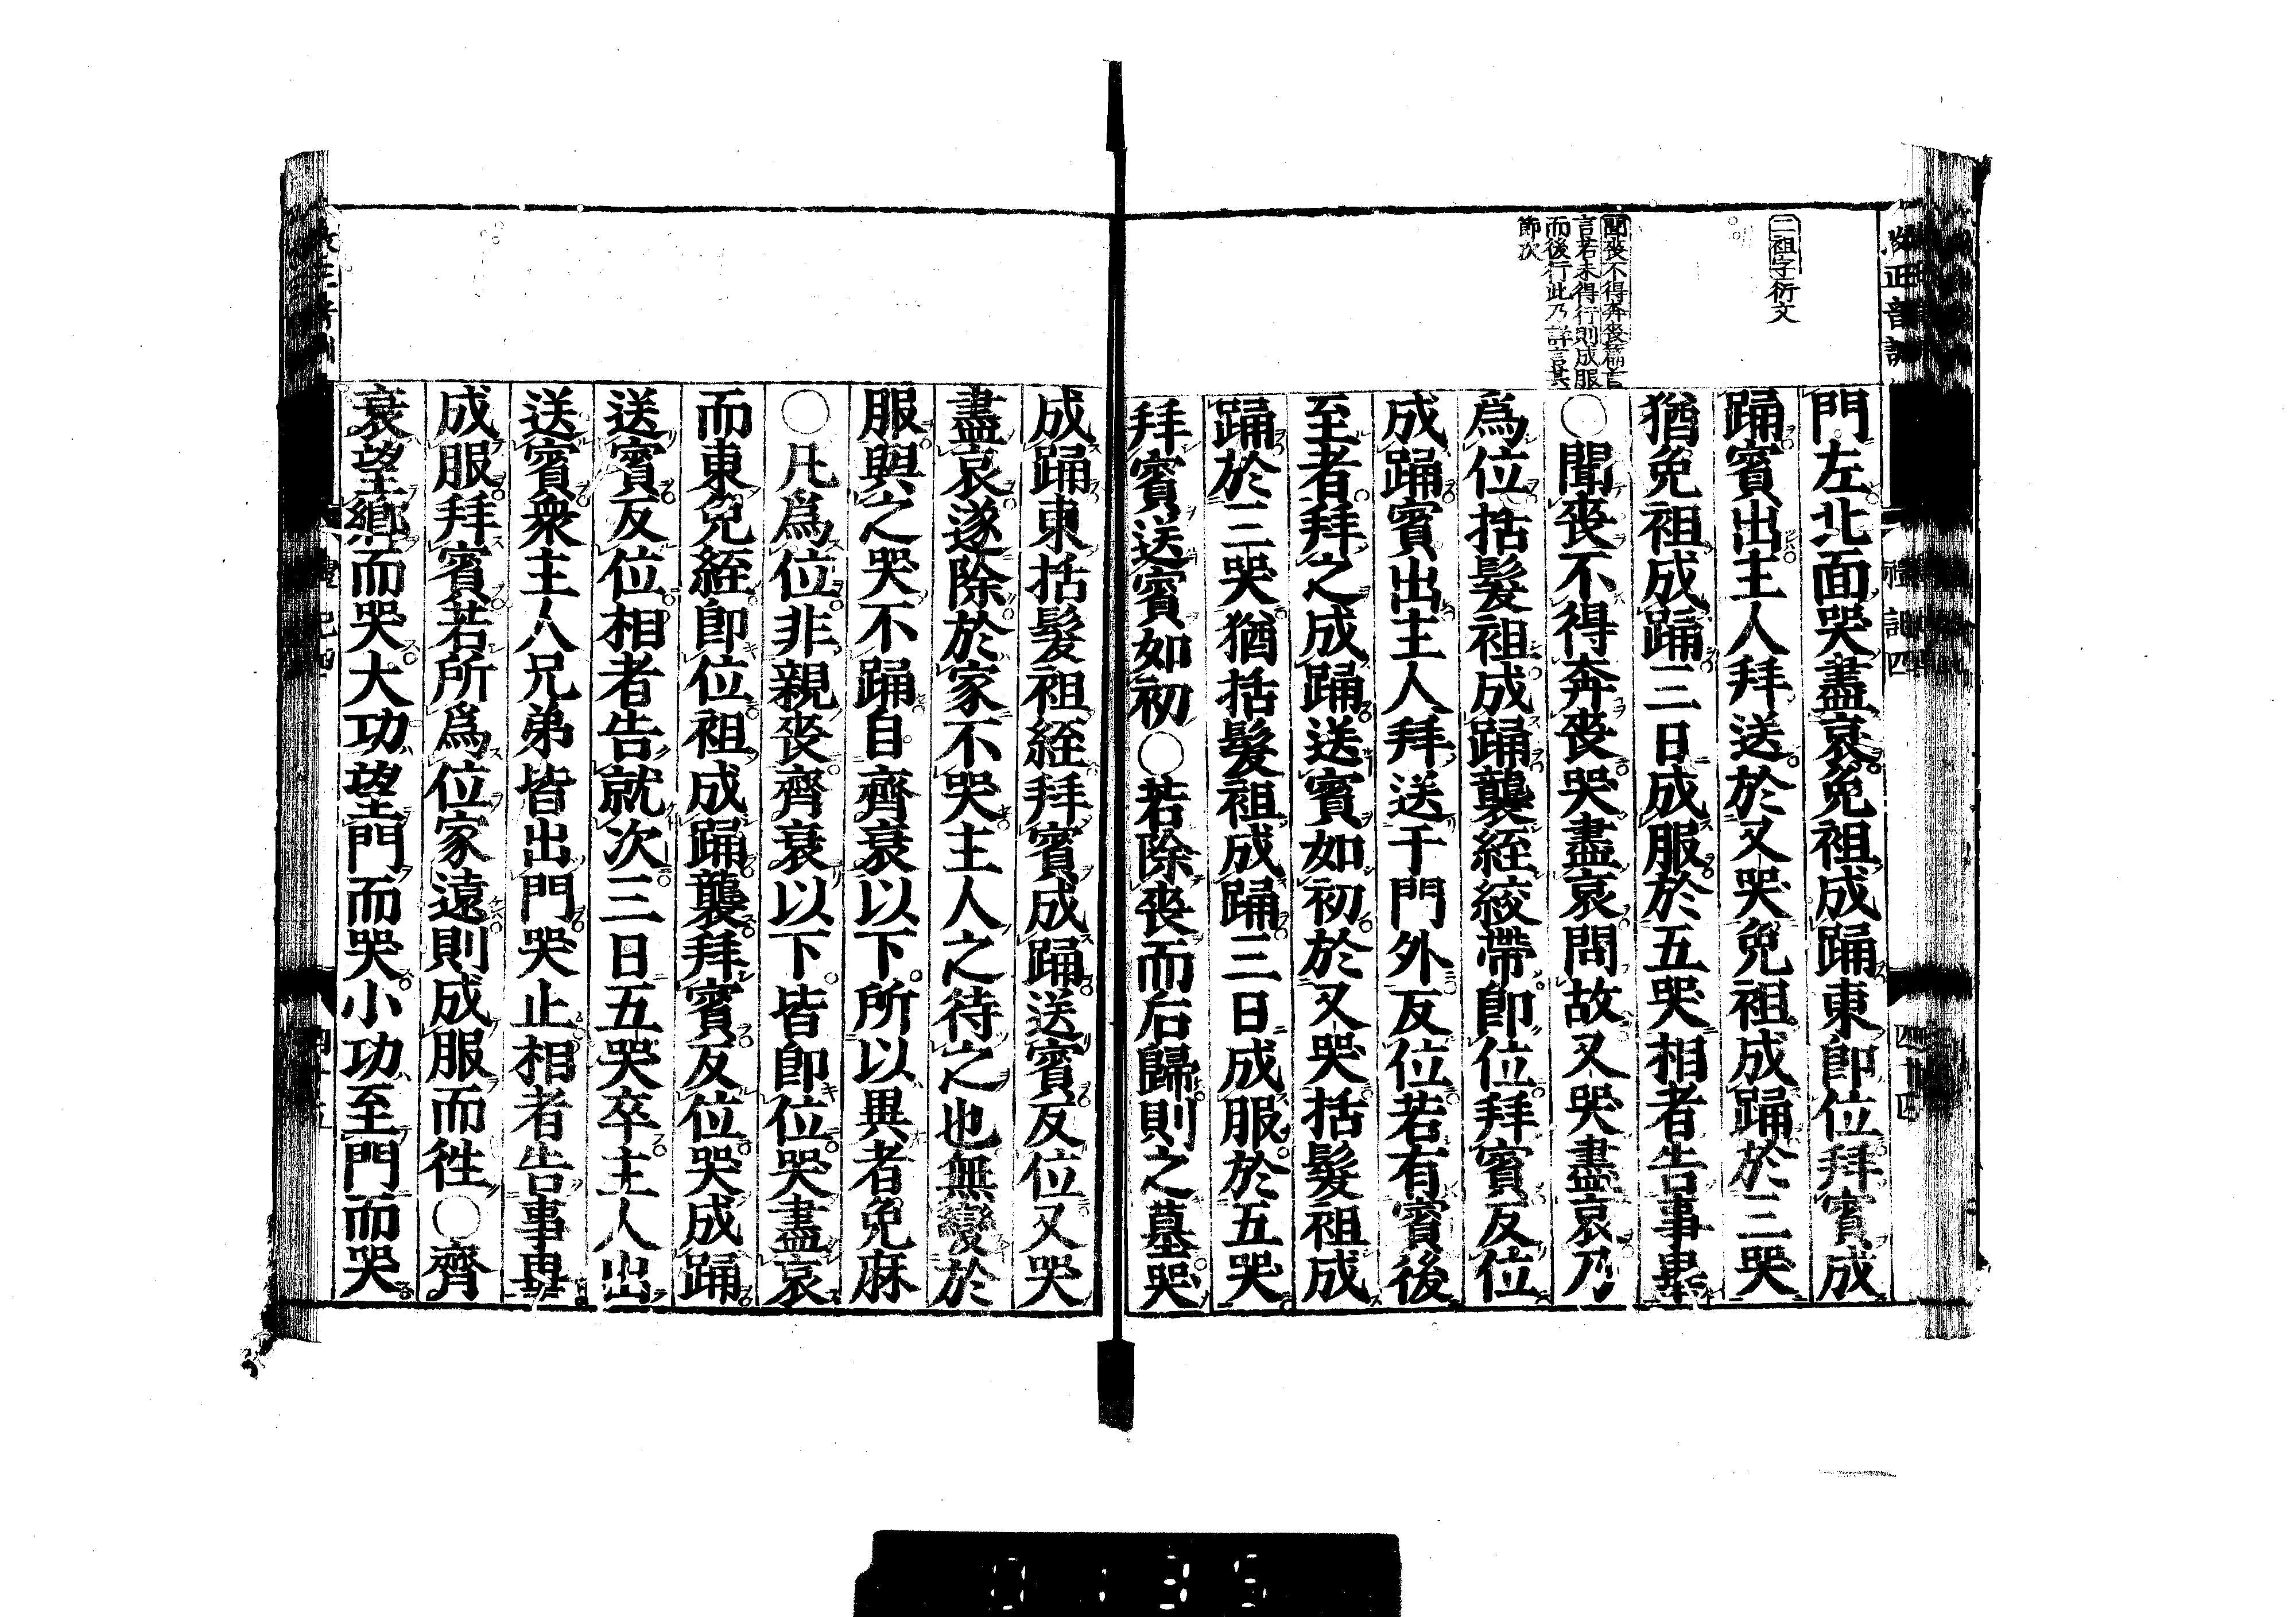 二袒字衍文
聞喪不得奔喪前言
言若未得行則成服
而後行此乃詳言其
節次
門左北面哭盡哀免袒成踊東即位拜賓成
踊賓出主人拜送於又哭免袒成踊於三哭
猶免袒成踊三日成服於五哭相者告事畢
○聞喪不得奔喪哭盡哀問故又哭盡哀乃
爲位括髮袒成踊襲絰絞帶即位拜賓反位
成踊賓出主人拜送于門外反位若有賓後
至者拜之成踊送賓如初於又哭括髮袒成
踊於三哭猶括髮袒成踊三日成服於五哭
拜賓送賓如初○若除喪而后歸則之墓哭
成踊東括髮袒絰拜賓成踊送賓反位又哭
盡哀遂除於家不哭主人之待之也無變於
服與之哭不踊自齊衰以下所以異者免麻
○凡爲位非親喪齊衰以下皆即位哭盡哀
而東免絰即位袒成踊襲拜賓反位哭成踊
送賓反位相者告就次三日五哭卒主人出
送賓衆主人兄弟皆出門哭止相者告事畢
成服拜賓若所爲位家遠則成服而徃○齊
衰望鄉而哭大功望門而哭小功至門而哭
禮記四
四廿四